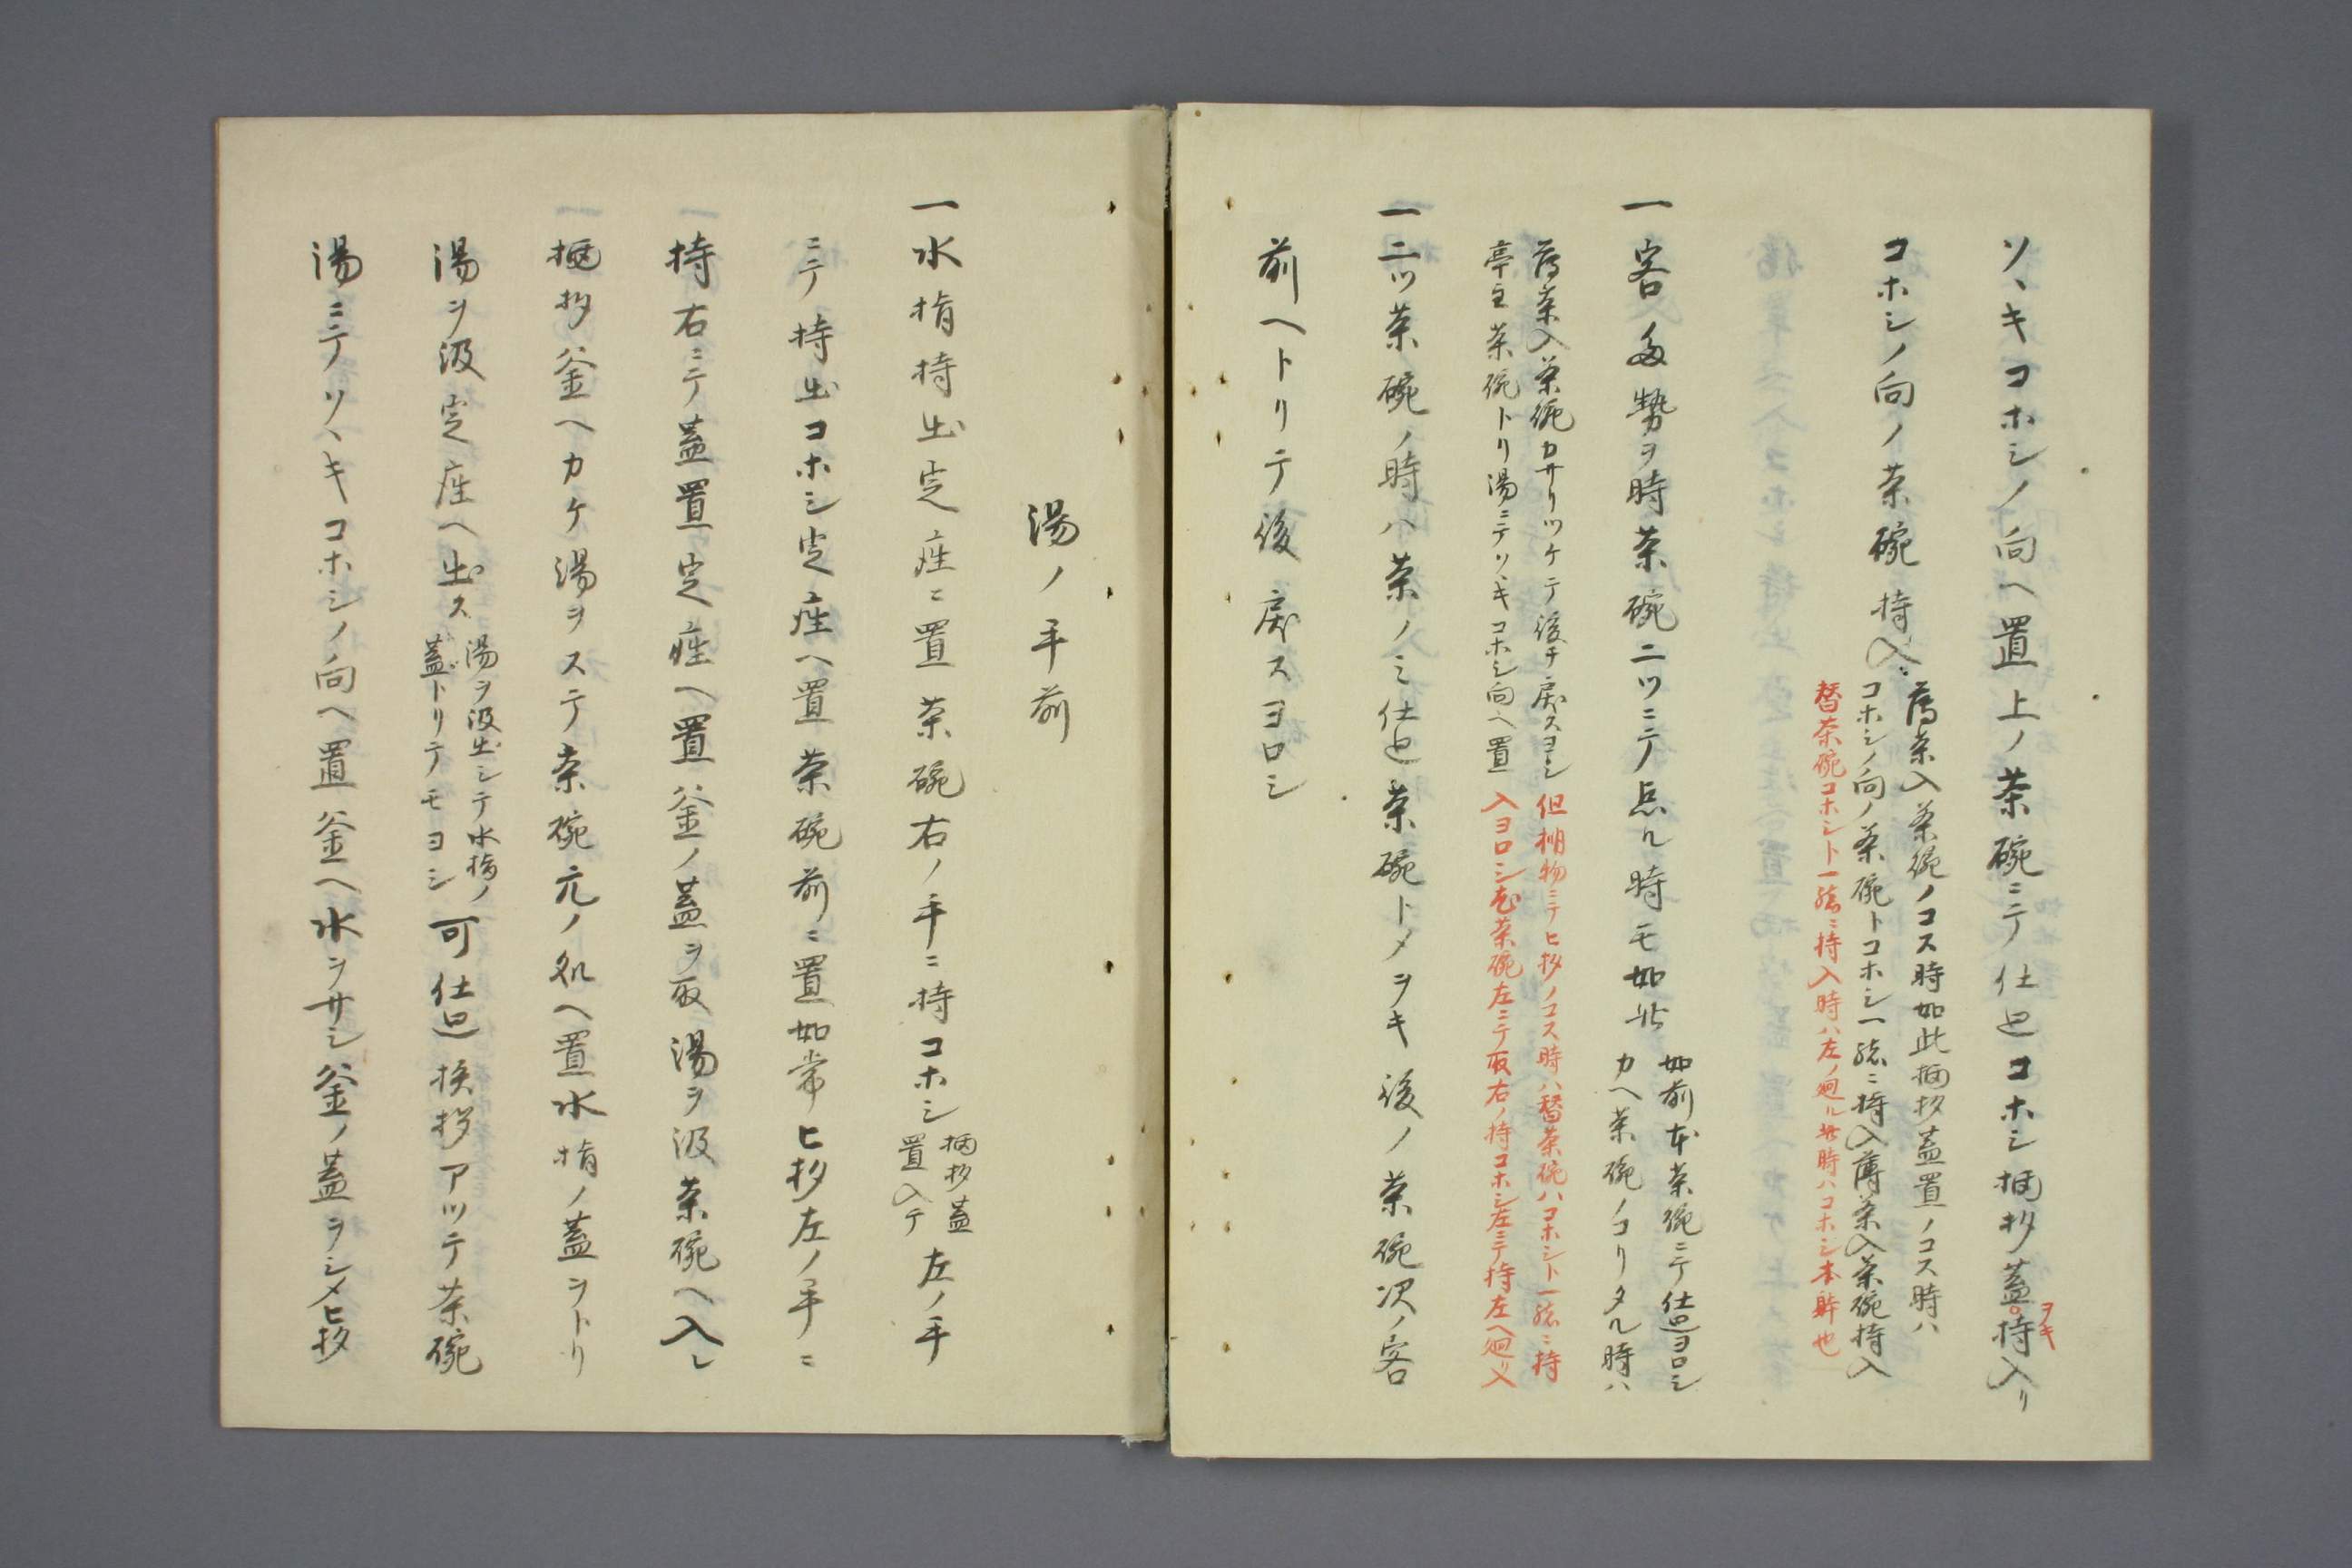 ソヽキコホシノ向ヘ置上ノ茶碗ニテ仕コホシ柄杓蓋持入リ
ヲキ
コホシノ向ノ茶碗持入
薄茶入茶碗ノコス時如此柄杓蓋置ノコス時ハ
コホシノ向ノ茶碗トコホシ一緒ニ持入薄茶入茶碗持入
替茶碗コホシト一緒ニ持入時ハ左ノ廻ル此時ハコホシ本躰也
一客多勢ヲ時茶碗二ツニテ点ル時モ如此
如前本茶碗ニテ仕ヨロシ
カヘ茶碗ノコリタル時ハ
薄茶入茶碗カサリツケテ後チ戻スヨシ
亭主茶碗トリ湯ニテソヽキコホシ向ヘ置
但棚物ニテヒ杓ノコス時ハ替茶碗ハコホシト一緒ニ持
入ヨロシ茶碗左ニテ取右ノ持コホシ左ニテ持左ヘ廻リ入
一二ツ茶碗ノ時ハ茶ノミ仕茶碗トメヲキ後ノ茶碗次ノ客
前ヘトリテ後戻スヨロシ
湯ノ手前
一水指持出定座ニ置茶碗右ノ手ニ持コホシ
柄杓蓋
置入テ
左ノ手
ニテ持出コホシ定座ヘ置茶碗前ニ置如常ヒ杓左ノ手ニ
持右ニテ蓋置定座ヘ置釜ノ蓋ヲ取湯ヲ汲茶碗ヘ入レ
柄杓釜ヘカケ湯ヲステ茶碗元ノ処ヘ置水指ノ蓋ヲトリ
湯ヲ汲定座ヘ出ス
湯ヲ汲出シテ水指ノ
蓋トリテモヨシ
可仕挨拶アツテ茶碗
湯ニテソヽキコホシノ向ヘ置釜ヘ水ヲサシ釜ノ蓋ヲシメヒ杓